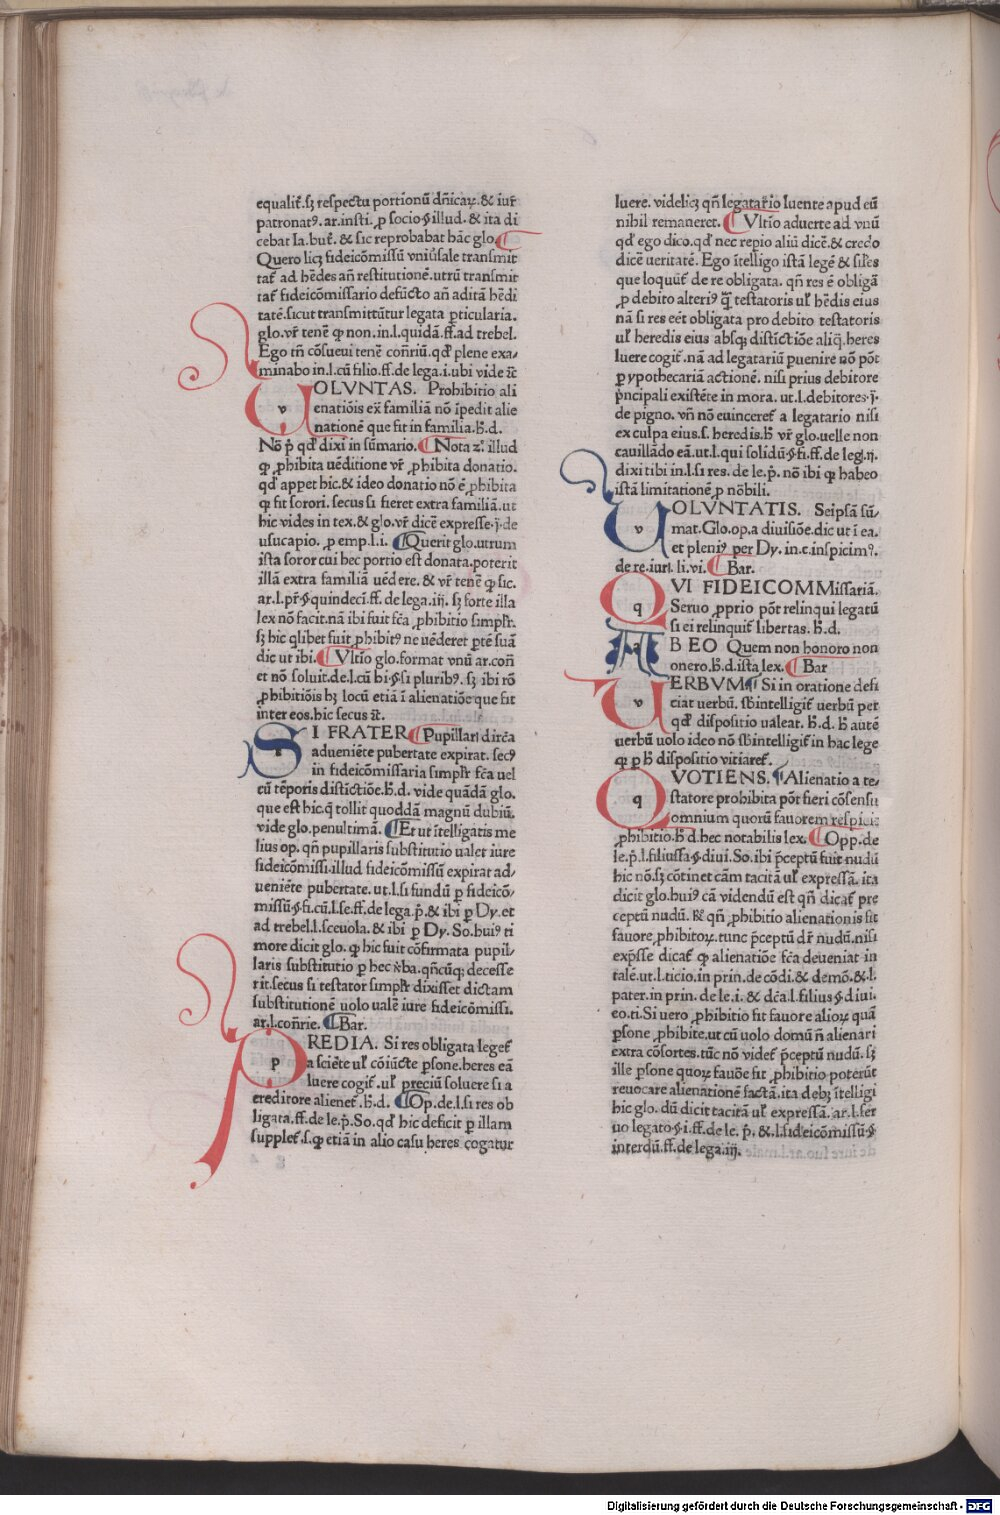 equalit̄. sꝫ respectu portionū dn̄icaꝝ. & iur̄
patronatꝰ. ar. insti. ꝑ socio §illud. & ita di
cebat Ia. but̄. & sic reprobabat hāc glo. ¶
Quero licꝫ fideicōmissū vniūsale transmit
tat̄ ad hēdes añ restitutionē. utrū transmit
tat̄ fideicōmissario defūcto añ aditā hēdi
tatē. sicut transmittūtur legata ꝑticularia.
glo. vr̄ tenē ꝙ non. in. l. quidā. ff. ad trebel.
Ego tn̄ cōsueui tenē con̄riū. qd̄ plene exa/
minabo in. l. cū filio. ff. de lega. i. ubi vide ūt
VOLVNTAS. Prohibitio ali
enatiōis ex̄ familiā nō īpedit alie
nationē que fit in familia. h̄. d.
Nō p̄ qd̄ dixi in sūmario. ¶ Nota zͦ. illud
ꝙ ꝓhibita uēditione vr̄ ꝓhibita donatio.
qd̄ appet hic. & ideo donatio nō ē ꝓhibita
ꝙ fit sorori. secus si fieret extra familiā. ut
hic vides in tex. & glo. vr̄ dicē expresse. j. de
usucapio. ꝑ emp. l. i. ¶ Querit glo. utrum
ista soror cui hec portio est donata. poterit
illā extra familiā uēdere. & vr̄ tenē ꝙ sic.
ar. l. pr̄. § quindeci. ff. de lega. iij. sꝫ forte illa
lex nō facit. nā ibi fuit fc̄a ꝓhibitio simplr̄.
sꝫ hic qlibet fuit ꝓhibitꝰ ne uēderet ꝑtē suā
dic ut ibi. ¶ Vltīo glo. format vnū ar. con̄
et nō soluit. de. l. cū bi. § si pluribꝰ. sꝫ ibi rō
ꝓhibitiōis hꝫ locū etiā ī alienatiōe que fit
inter eos. hic secus ūt.
SI FRATER ¶ Pupillari dirc̄a
adueniēte pubertate expirat. secꝰ
in fideicōmissaria simplr̄ fc̄a uel
cū tēporis distīctiōe. h̄. d. vide quādā glo.
que est hic. q̄ tollit quoddā magnū dubiū.
vide glo. penultimā. ¶ Et ut ītelligatis me
lius op. qn̄ pupillaris substitutio ualet iure
fideicōmissi. illud fideicōmissū expirat ad/
ueniēte pubertate. ut. l. si fundū ꝑ fideicō/
missū § fi. cū. l. se. ff. de lega. p̄. & ibi ꝑ Dy. et
ad trebel. l. sceuola. & ibi ꝑ Dy. So. huiꝰ ti
more dicit glo. ꝙ hic fuit cōfirmata pupil/
laris substitutio ꝑ hec v̄ba. qn̄cūqꝫ decesse
rit. secus si testator simplr̄ dixisset dictam
substitutionē uolo ualē iure fideicōmissi.
ar. l. con̄rie. ¶ Bar.
PREDIA. Si res obligata leget̄
a sciēte ul̄ cōiūcte ꝑsone. heres eā
luere cogit̄. ul̄ preciū soluere si a
creditore alienet̄. h̄. d. ¶ Op. de. l. si res ob
ligata. ff. de le. p̄. So. qd̄ hic deficit ꝑ illam
supplet̄. s. ꝙ etiā in alio casu heres cogatur
luere. videlicꝫ qn̄ legatario luente apud eū
nihil remaneret. ¶ Vltīo aduerte ad vnū
qd̄ ego dico. qd̄ nec repio aliū dicē. & credo
dicē ueritatē. Ego ītelligo istā legē & sil̄es
que loquūt̄ de re obligata. qn̄ res ē obligā
ꝓ debito alteriꝰ q̄ꝫ testatoris ul̄ hēdis eius
nā si res eēt obligata pro debito testatoris
ul̄ heredis eius absqꝫ distīctiōe aliq̄. heres
luere cogit̄. nā ad legatariū puenire nō pōt
ꝑ ypothecariā actionē. nisi prius debitore
p̄ncipali existēte in mora. ut. l. debitores. j.
de pigno. vn̄ nō euinceret̄ a legatario nisi
ex culpa eius. s. heredis. h̄ vr̄ glo. uelle non
cauillādo eā. ut. l. qui solidū § fi. ff. de leg. ij.
dixi tibi in. l. si res. de le. p̄. nō ibi ꝙ habeo
istā limitationē ꝓ nōbili.
VOLVNTATIS. Seipsā sū/
mat. Glo. op. a diuisiōe. dic ut ī ea.
et pleniꝰ per Dy. in. c. inspicimꝰ.
de re. iur. li. vi. ¶ Bar.
QVI FIDEICOMMissariā.
Seruo ꝓprio pōt relinqui legatū
si ei relinquit̄ libertas. h̄. d.
AB EO Quem non honoro non
onero. h̄. d. ista lex. ¶ Bar
VERBVM ¶ Si in oratione defi
ciat uerbū. sb̄intelligit̄ uerbū per
qd̄ dispositio ualeat. h̄. d. h̄ autē
uerbū uolo ideo nō sb̄intelligit̄ in hac lege
ꝙ ꝑ h̄ dispositio vitiaret̄.
QVOTIENS. ¶ Alienatio a te/
statore prohibita pōt fieri cōsensu
omnium quorū fauorem respicit
ꝓhibitio. h̄. d. hec notabilis lex. ¶ Opp. de
le. p̄. l. filiussa § diui. So. ibi p̄ceptū fuit nudū
hic nō. sꝫ cōtinet cām tacitā ul̄ expressā. ita
dicit glo. huiꝰ cā videndū est qn̄ dicat̄ pre
ceptū nudū. Rͥ. qn̄ ꝓhibitio alienationis fit
fauore ꝓhibitoꝝ. tunc p̄ceptū dr̄ nudū. nisi
exp̄sse dicat̄ ꝙ alienatiōe fc̄a deueniat in
talē. ut. l. ticio. in prin. de cōdi. & demō. & l.
pater. in prin. de le. i. & dc̄a. l. filius § diui.
eo. ti. Si uero ꝓhibitio fit fauore alioꝝ quā
ꝑsone ꝓhibite. ut cū uolo domū n̄ alienari
extra cōsortes. tūc nō videt̄ p̄ceptū nudū. sꝫ
ille ꝑsone quoꝝ fauōe fit ꝓhibitio poterūt
reuocare alienationē factā. ita debꝫ ītelligi
hic glo. dū dicit tacitā ul̄ expressā. ar. l. ser
uo legato § i. ff. de le. p̄. & l. fideicōmissū §
interdū. ff. de lega. iij.
Digitalisierung gefördert durch die Deutsche Forschungsgemeinschaft - DFG